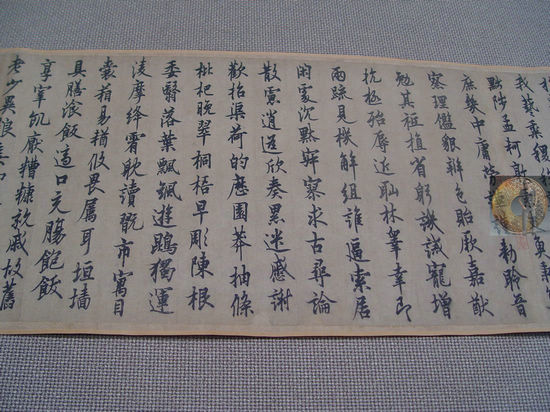 我藝黍稷
黜陟孟軻敦
庶幾中庸 勑聆音
察理鑑貌辯色貽厥嘉猷
勉其祗植省躬譏誡寵增
抗極殆辱近恥林睪幸即
兩疎見機解組誰逼索居
閑處沉默寂寥求古尋論
散慮逍遥欣奏累遣慼謝
歡招渠荷的歷園莽抽條
枇杷晚翠桐梧早彫陳根
委翳落葉飄颻遊鵾獨運
凌摩絳霄耽讀翫市寓目
囊箱易輶攸畏屬耳垣墻
具膳飡飯適口充腸飽飫
享宰飢厭糟糠親戚故舊
老少異粮